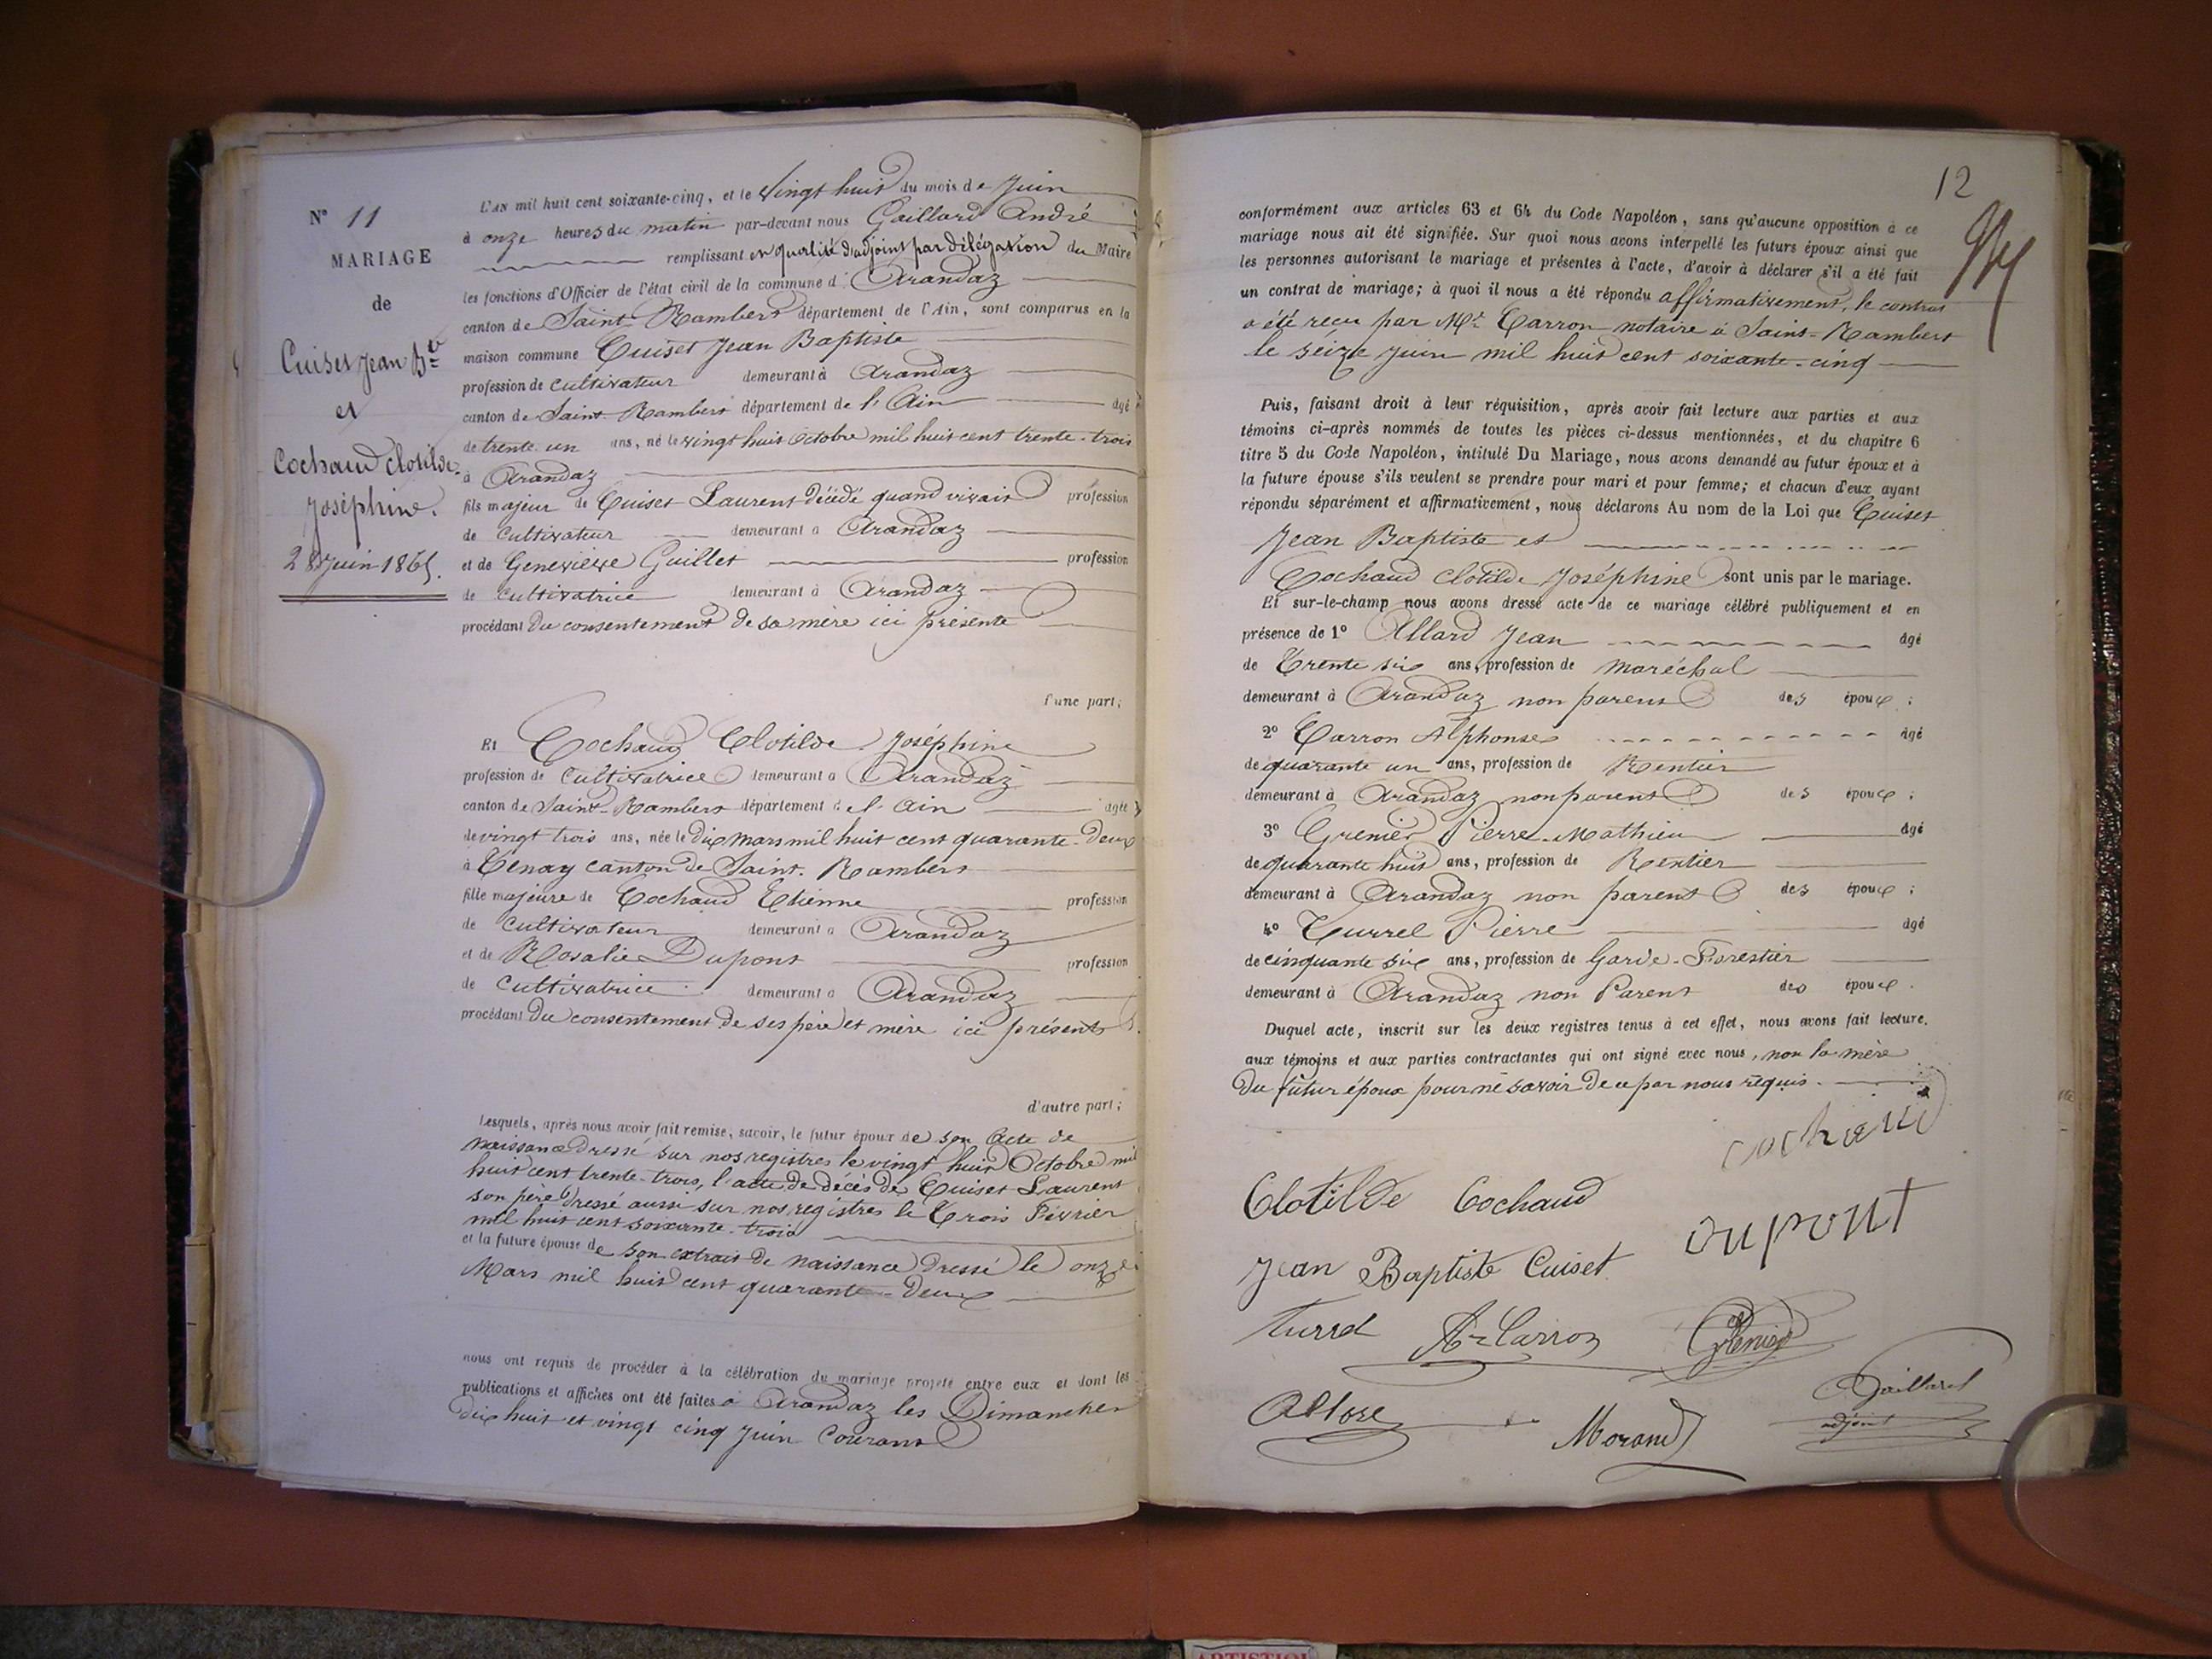 N° 11
MARIAGE
de
Cuiset Jean Bte
et
Cochaud Clotilde
Joséphine.
28 Juin 1865.
L'AN mil huit cent soixante-cinq, et le Vingt huit du mois de Juin
à onze heures du matin par-devant nous Gaillard André
remplissant en qualité d'adjoint par délégation du Maire
les fonctions d'Officier de l'état civil de la commune d' Arandaz
canton de Saint-Rambert département de l'Ain, sont comparus en la
maison commune Cuiset Jean Baptiste
profession de cultivateur demeurant à Arandaz
canton de Saint-Rambert département de l'Ain âgé
de trente un ans, né le vingt huit Octobre mil huit cent trente-trois
à Arandaz
fils majeur de Cuiset Laurent décédé quand vivait profession
de Cultivateur demeurant à Arandaz
et de Geneviève Guillet profession
de cultivatrice demeurant à Arandaz
procédant du consentement de sa mère ici présente
d'une part;
Et Cochaud Clotilde Joséphine
profession de Cultivatrice demeurant à Arandaz
canton de Saint-Rambert département de l'Ain âgée
de vingt trois ans, née le dix mars mil huit cent quarante-deux
à Tenay canton de Saint-Rambert
fille majeure de Cochaud Etienne profession
de cultivateur demeurant à Arandaz
et de Rosalie Dupont profession
de Cultivatrice demeurant à Arandaz
procédant du consentement de ses père et mère ici présents
d'autre part;
Lesquels, après nous avoir fait remise, savoir, le futur époux de son Acte de
naissance dressé sur nos registres le vingt huit Octobre mil
huit cent trente-trois, l'acte de décès de Cuiset Laurent
son père dressé aussi sur nos régistres le Trois Février
mil huit cent soixante-trois
et la future épouse de son extrait de naissance dressé le onze
Mars mil huit cent quarante-Deux
nous ont requis de procéder à la célébration du mariage projeté entre eux et dont les
publications et affiches ont été faites à Arandaz les Dimanches
dix huit et vingt cinq Juin Courant
12
conformément aux articles 63 et 64 du Code Napoléon, sans qu'aucune opposition à ce
mariage nous ait été signifiée. Sur quoi nous avons interpellé les futurs époux ainsi que
les personnes autorisant le mariage et présentes à l'acte, d'avoir à déclarer s'il a été fait
un contrat de mariage; à quoi il nous a été répondu affirmativement, le contrat
a été reçu par Mt Carron notaire à Saint-Rambert
le seize juin mil huit cent soixante-cinq
Puis, faisant droit à leur réquisition, après avoir fait lecture aux parties et aux
témoins ci-après nommés de toutes les pièces ci-dessus mentionnées, et du chapitre 6
titre 5 du Code Napoléon, intitulé Du Mariage, nous avons demandé au futur époux et à
la future épouse s'ils veulent se prendre pour mari et pour femme; et chacun d'eux ayant
répondu séparément et affirmativement, nous déclarons Au nom de la Loi que Cuiset
Jean Baptiste et
Cochaud Clotilde Joséphine sont unis par le mariage.
Et sur-le-champ nous avons dressé acte de ce mariage célébré publiquement et en
présence de 1° Allard Jean âgé
de Trente six ans, profession de maréchal
demeurant à Arandaz non parent des époux;
2° Carron Alphonse âgé
de quarante un ans, profession de Rentier
demeurant à Arandaz non parent des époux;
3° Grenier Pierre-Mathieu âgé
de quarante huit ans, profession de Rentier
demeurant à Arandaz non parent des époux;
4° Turrel Pierre âgé
de cinquante six ans, profession de Garde-Forestier
demeurant à Arandaz non Parent des époux.
Duquel acte, inscrit sur les deux registres tenus à cet effet, nous avons fait lecture.
aux témoins et aux parties contractantes qui ont signé avec nous, non la mère
du futur époux pour ne savoir de ce par nous requis.
cochaud
Clotilde Cochaud
Dupont
Jean Baptiste Cuiset
Turrel Carron Grenier
Gaillard
adjoint
Morand